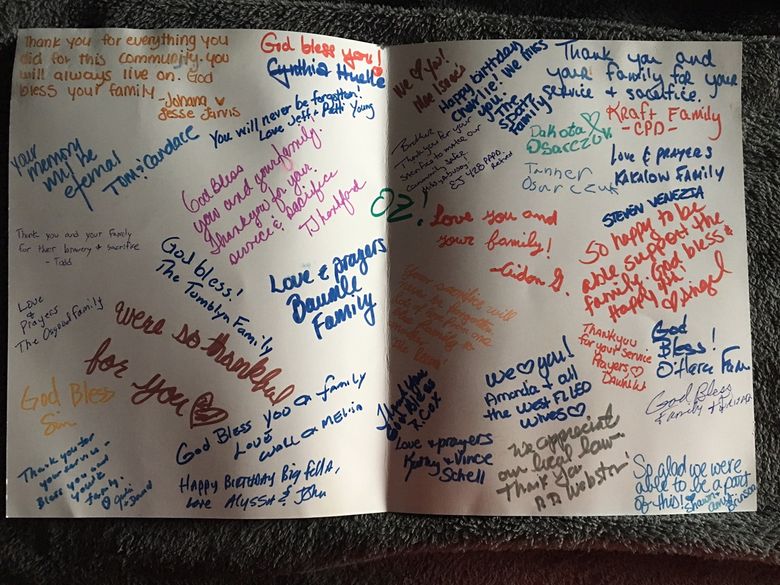 Thank you for everything you
did for this community. You
will always live on. God
bless your family
-Johana
Jesse Jarvis
God bless you!
Cynthia
You will never be forgotten!
Love Jeff & Patti Young
Your
memory
will be
eternal
Tom & Candace
God Bless
you and your family.
Thank you for your
service & sacrifice
Thank you and your family
for their bravery & sacrifice
- Todd
God bless!
The Tomblyn Family
Love & prayers
Family
Love
&
Prayers
The Osgood Family
We're so thankful
for you
God Bless
God Bless you & family
Love
Thank you for
your service -
Bless you and
your
family.
Happy Birthday Big fella,
Love Alyssa & John
We ♥ You!
Happy birthday
Charlie! We miss
you.
The
Spatz
Family
Thank you and
your family for your
service & sacrifice.
Kraft Family
-CPD-
Brother
Thank you for your
sacrifice to make our
community safer
EJ 428 PPPD
Retired
Dakota
Osarczuk
Tanner
Osarczuk
Love & prayers
Kakalow Family
Steven Venezia
OZ!
Love you and
your family!
Aidan G.
So happy to be
able support the
family. God bless &
Happy 4th!
Angel
Your sacrifice will
never be forgotten
Thank you
for your service
Prayers
God
Bless!
O'Hera Fam
We ♥ you!
Amanda & all
the West FL LEO
Wives ♥
God Bless
Family &
Thank you
God Bless
R. Cox
Love & prayers
Kathy & Vince
Schell
We appreciate
our local law.
Thank You
Webster!
So glad we were
able to be a part
of this!
Shawn
Amy
Brinson